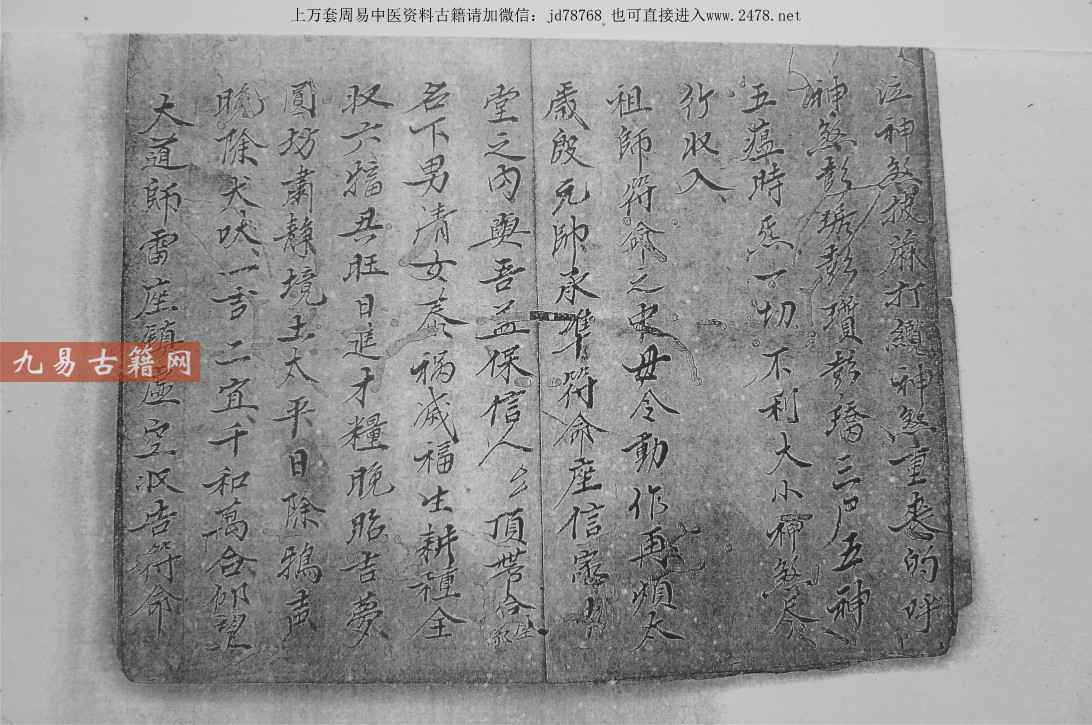 上万套周易中医资料古籍请加微信：jd78768 也可直接进入www.2478.net
泣神煞披蔴打繩神煞重喪的呼
神煞彭琚彭瓆彭矯三尸五神
五瘟時炁一切不利大小神煞尽
行收入
祖師符命之中毋令動作再煩太
歲殷元帥承準符命座信家
堂之內與吾益保信人厶頂帶合
名下男清女泰禍滅福生耕種全
收六福共旺日進才糧晚臨吉夢
圓坊肅静境土太平日除鴉声
晚除犬吠一吉二宜千和萬合仰望
大道師雷座鎮虛空収吉符命
九易古籍网